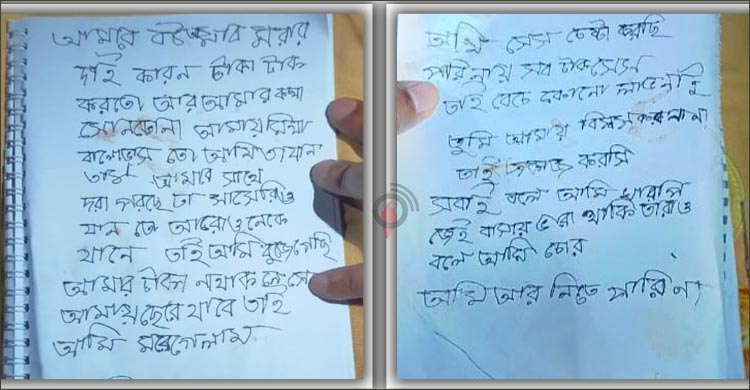 আমার বউআমার মরার
দাই কারন টাকা টাক
করতো আর আমার কথা
সোনতোনা আমায় মিথ্যা
বালোভেসে তো আমি তা যান
তাম আমার সাথে
দরা পরছে তা সাসেরিও
যান তে আরো অনেকে
যানে তাই আমি বুজেগেছি
আমার টাকা নাথাক লে সে
আমায় ছেরে যাবে তাই
আমি মরেগেলাম
আমি সেস চেষ্টা করছি
পারিনায় সব টাকা সেস
তাই বেচে থকানো লাভ নাই
তুমি আমায় বিস্সাস করলা না
তাই করসি
সবাই বলে আমি খারাপ
জেই বাসায় ভারা থাকি তারাও
বলে আমি চোর
আমি আর নিতে পারিনা